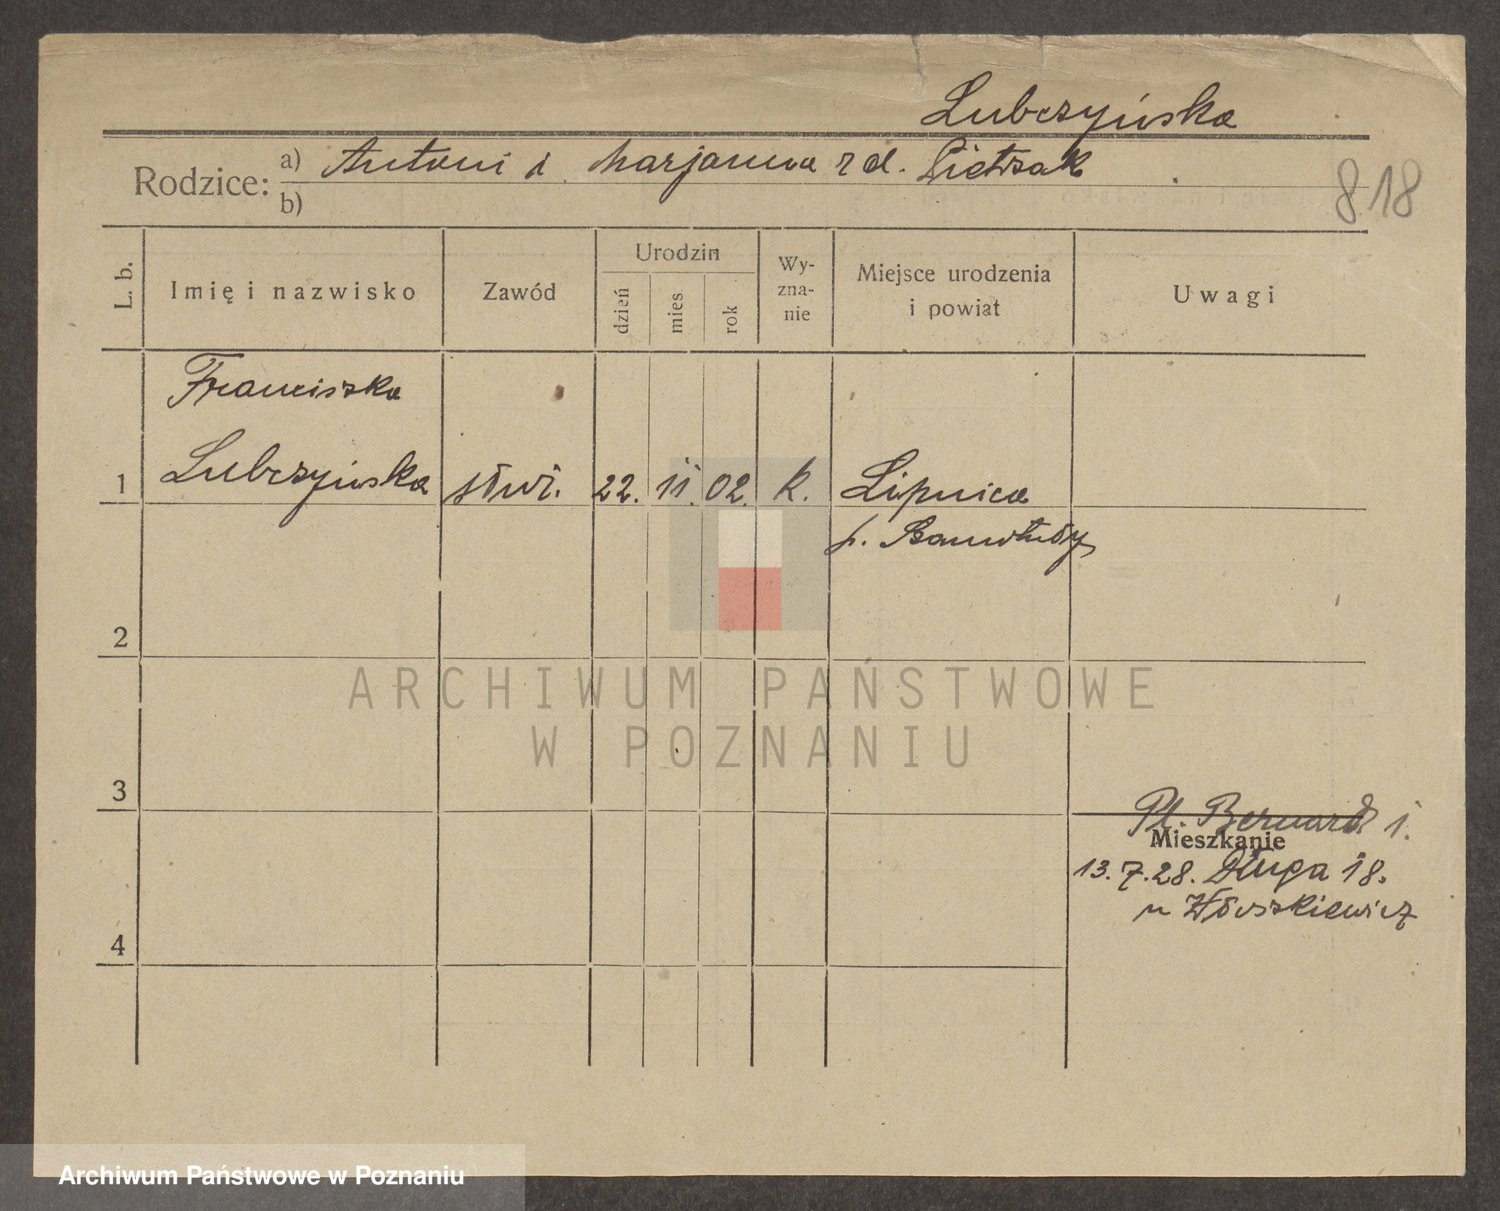 Lubczyńska
Rodzice: a) Antoni i Marjanna z d. Pietrzak
b)
818
L. b.
Imię i nazwisko
Zawód
Urodzin
dzień
mies
rok
Wy-
zna-
nie
Miejsce urodzenia
i powiat
Uwagi
Franciszka
1 Lubczyńska służ. 22. 11. 02. k. Lipnica
p. Szamotuły
2
ARCHIWUM PAŃSTWOWE
W POZNANIU
3
Pl. Bernard 1.
Mieszkanie
13.7.28. Długa 18.
4
Archiwum Państwowe w Poznaniu